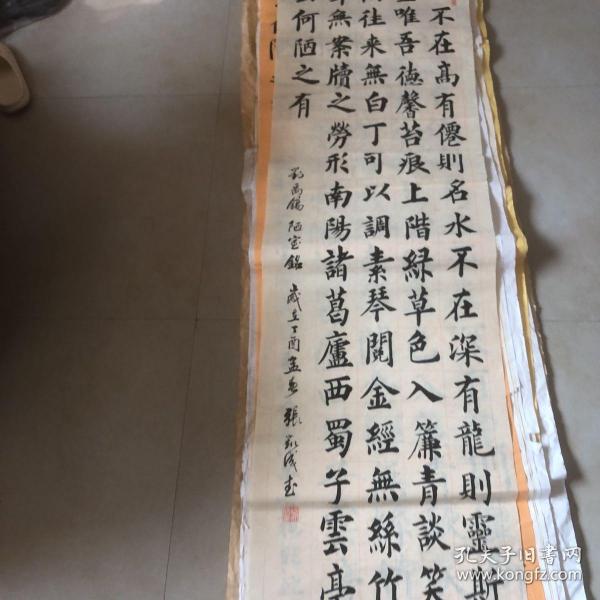 不在高有僊則名水不在深有龍則靈斯
唯吾德馨苔痕上階綠草色入簾青談笑
往來無白丁可以調素琴閱金經無絲竹
無案牘之勞形南陽諸葛廬西蜀子雲亭
何陋之有
劉禹錫 陋室銘 歲在丁酉孟
孔夫子旧书网
www.kongfz.com